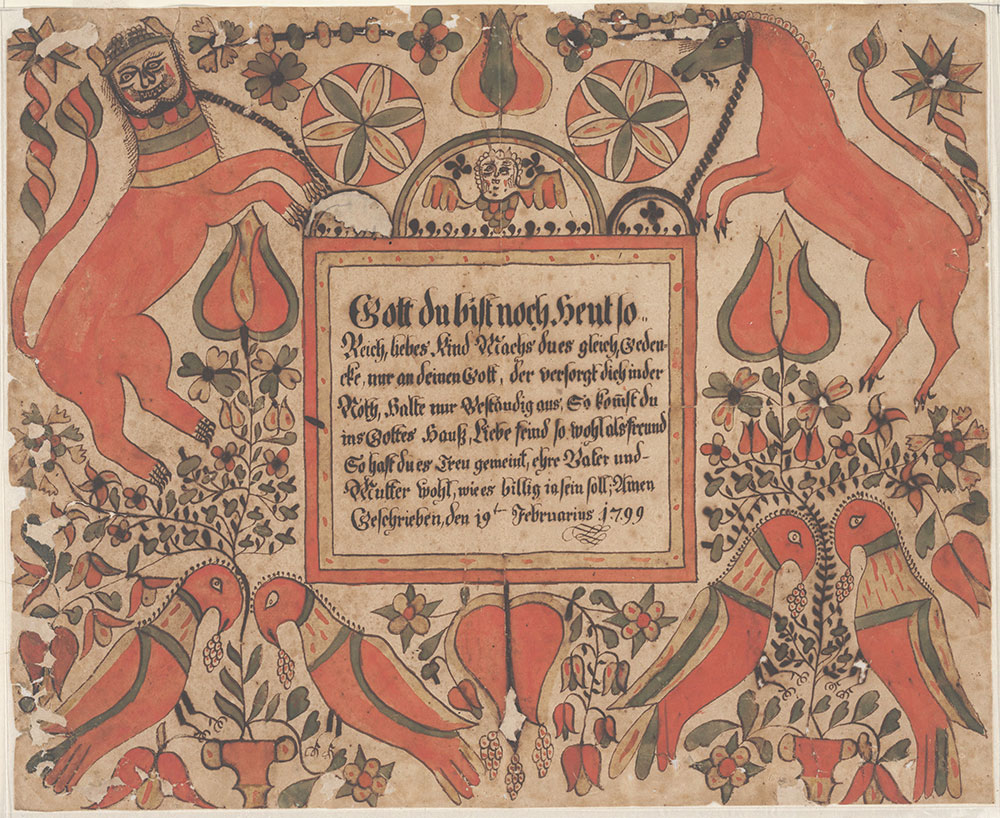 Gott du bist noch Heut so„
Reich, liebes Kind Machs dues gleich, Geden-
cke, nur an deinen Gott, der versorgt dich in der
Noth, Halte nur Beständig aus, So komst du
ins Gottes Hauß, Liebe feind so wohl als freund
So hast du es Treu gemeint, ehre Vater und-
Mutter wohl, wie es billig ia sein soll; Amen
Geschrieben, den 19ten Februarius 1799